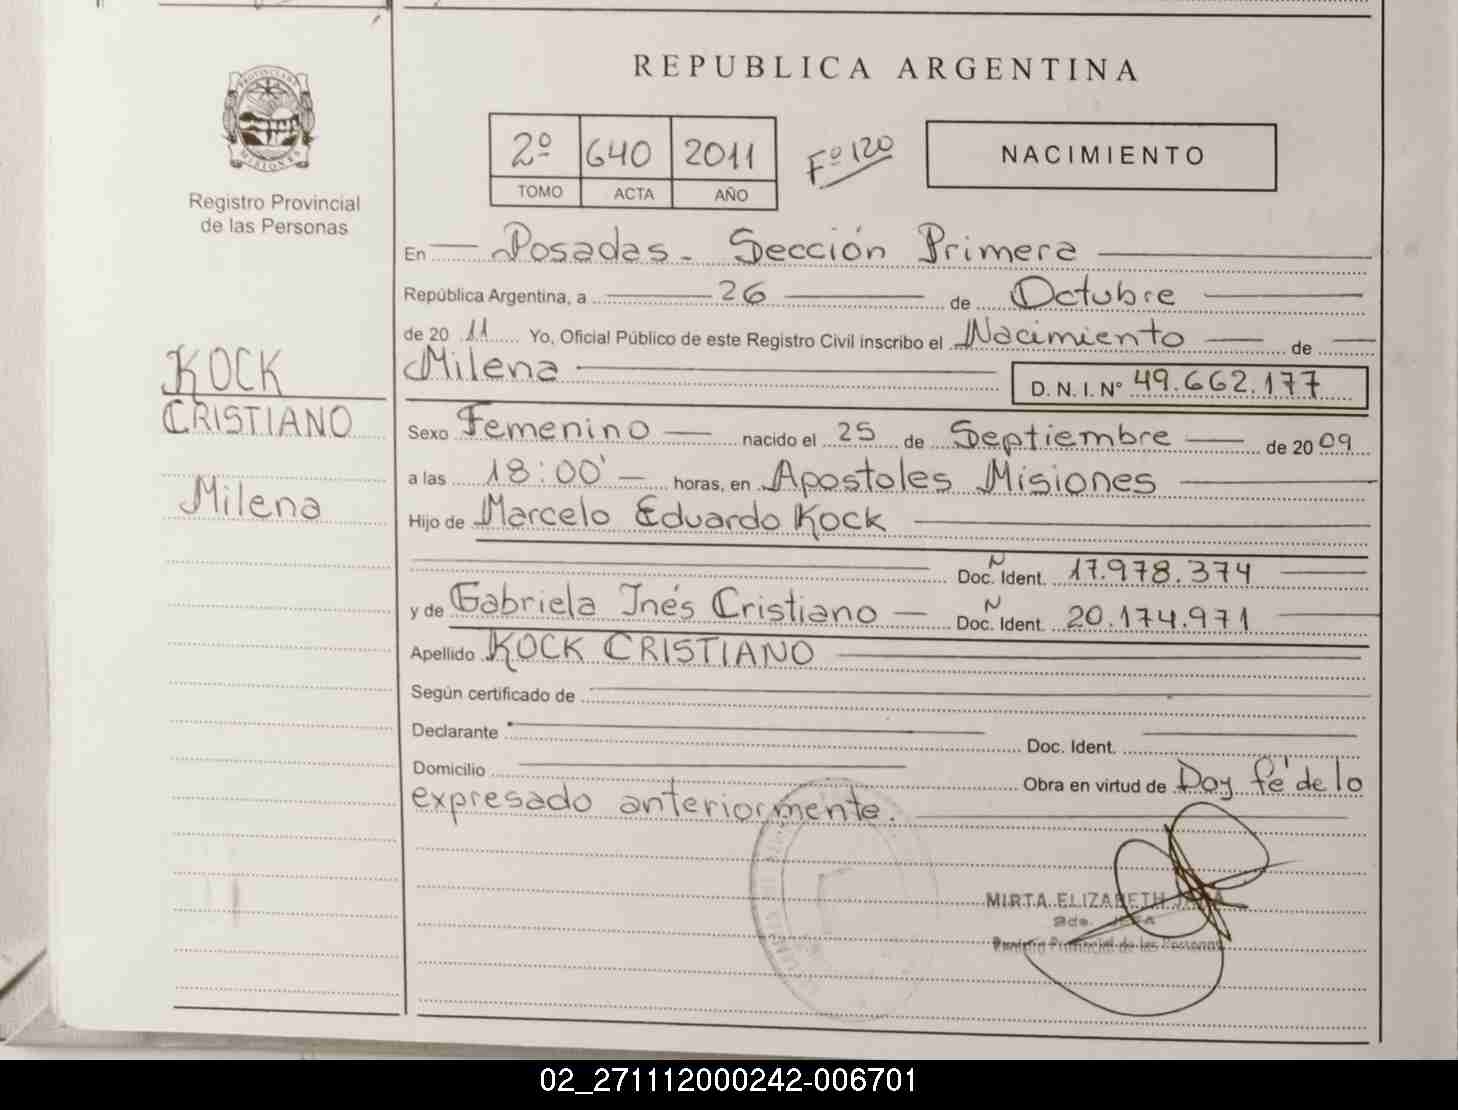 REPUBLICA ARGENTINA
PROVINCIA
MISIONES
Registro Provincial
de las Personas
2º 640 2011
TOMO ACTA AÑO
Fº 120
NACIMIENTO
En Posadas. Sección Primera
República Argentina, a 26 de Octubre
de 20 11 Yo, Oficial Público de este Registro Civil inscribo el Nacimiento de
Milena D. N. I. Nº 49.662.177
KOCK
CRISTIANO
Milena
Sexo Femenino nacido el 25 de Septiembre de 20 09
a las 18:00' horas, en Apostoles Misiones
Hijo de Marcelo Eduardo Kock
N
Doc. Ident. 17.978.374
y de Gabriela Inés Cristiano N
Doc. Ident. 20.174.971
Apellido KOCK CRISTIANO
Según certificado de
Declarante Doc. Ident.
Domicilio Obra en virtud de Doy fé de lo
expresado anteriormente.
MIRTA ELIZABETH
Registro Provincial de las Personas
02_271112000242-006701